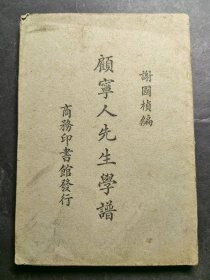 謝國楨編
顧寧人先生學譜
商務印書館發行